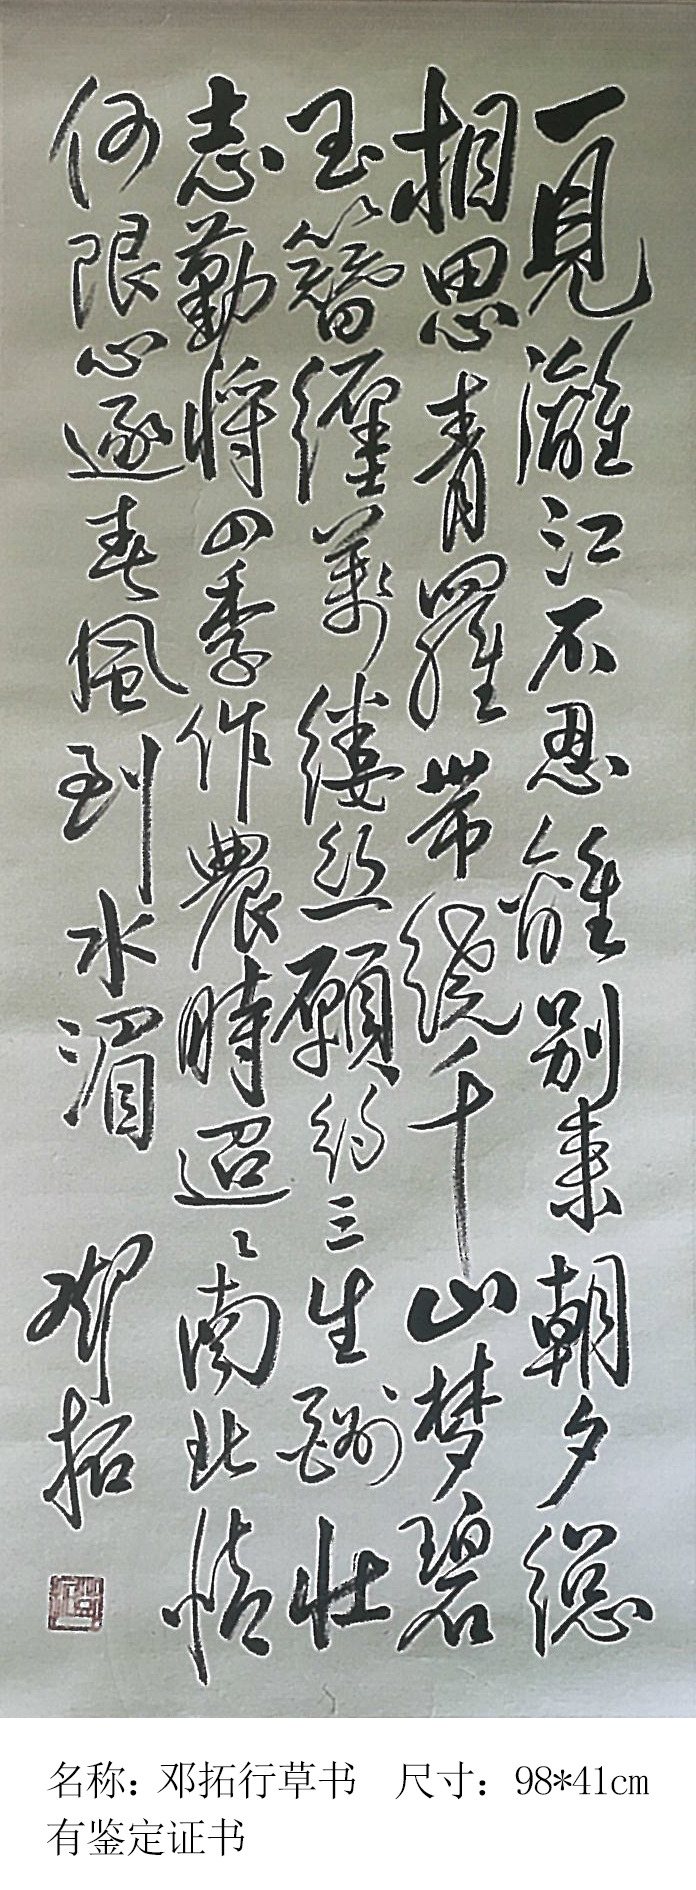 一見灕江不忍離别来朝夕總
相思青羅帶繞千山梦碧
玉簪纏萬縷絲願約三生酬壯
志勤将四季作農時迢々南北情
何限心逐春風到水湄
鄧拓
名称：邓拓行草书　尺寸：98*41cm
有鉴定证书